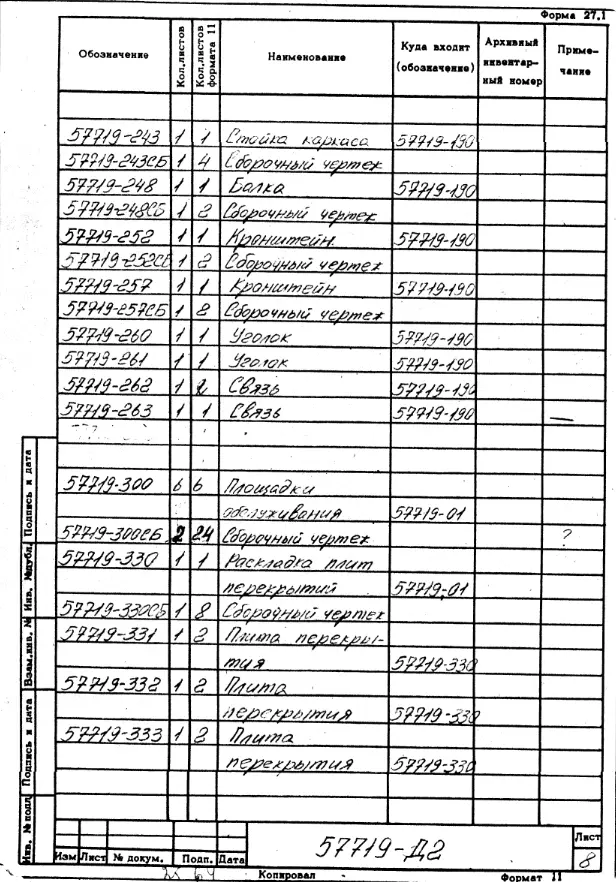 Форма 27.1
Обозначение Кол.листов Кол.листов формата 11 Наименование Куда входит (обозначение) Архивный инвентар- ный номер Приме- чание
57719-243 1 1 Стойка каркаса 57719-190
57719-243СБ 1 4 Сборочный чертеж
57719-248 1 1 Балка 57719-190
57719-248СБ 1 2 Сборочный чертеж
57719-252 1 1 Кронштейн 57719-190
57719-252СБ 1 2 Сборочный чертеж
57719-257 1 1 Кронштейн 57719-190
57719-257СБ 1 2 Сборочный чертеж
57719-260 1 1 Уголок 57719-190
57719-261 1 1 Уголок 57719-190
57719-262 1 2 Связь 57719-190
57719-263 1 1 Связь 57719-190 —
57719-300 6 6 Площадки
обслуживания 57719-01
57719-300СБ 2 24 Сборочный чертеж ?
57719-330 1 1 Раскладка плит
перекрытий 57719-01
57719-330СБ 1 8 Сборочный чертеж
57719-331 1 2 Плита перекры-
тия 57719-330
57719-332 1 2 Плита
перекрытия 57719-330
57719-333 1 2 Плита
перекрытия 57719-330
Инв. № подл. Подпись и дата Взам.инв. № Инв. № дубл. Подпись и дата
Изм Лист № докум. Подп. Дата
57719-Д2
Лист
8
Копировал Формат 11